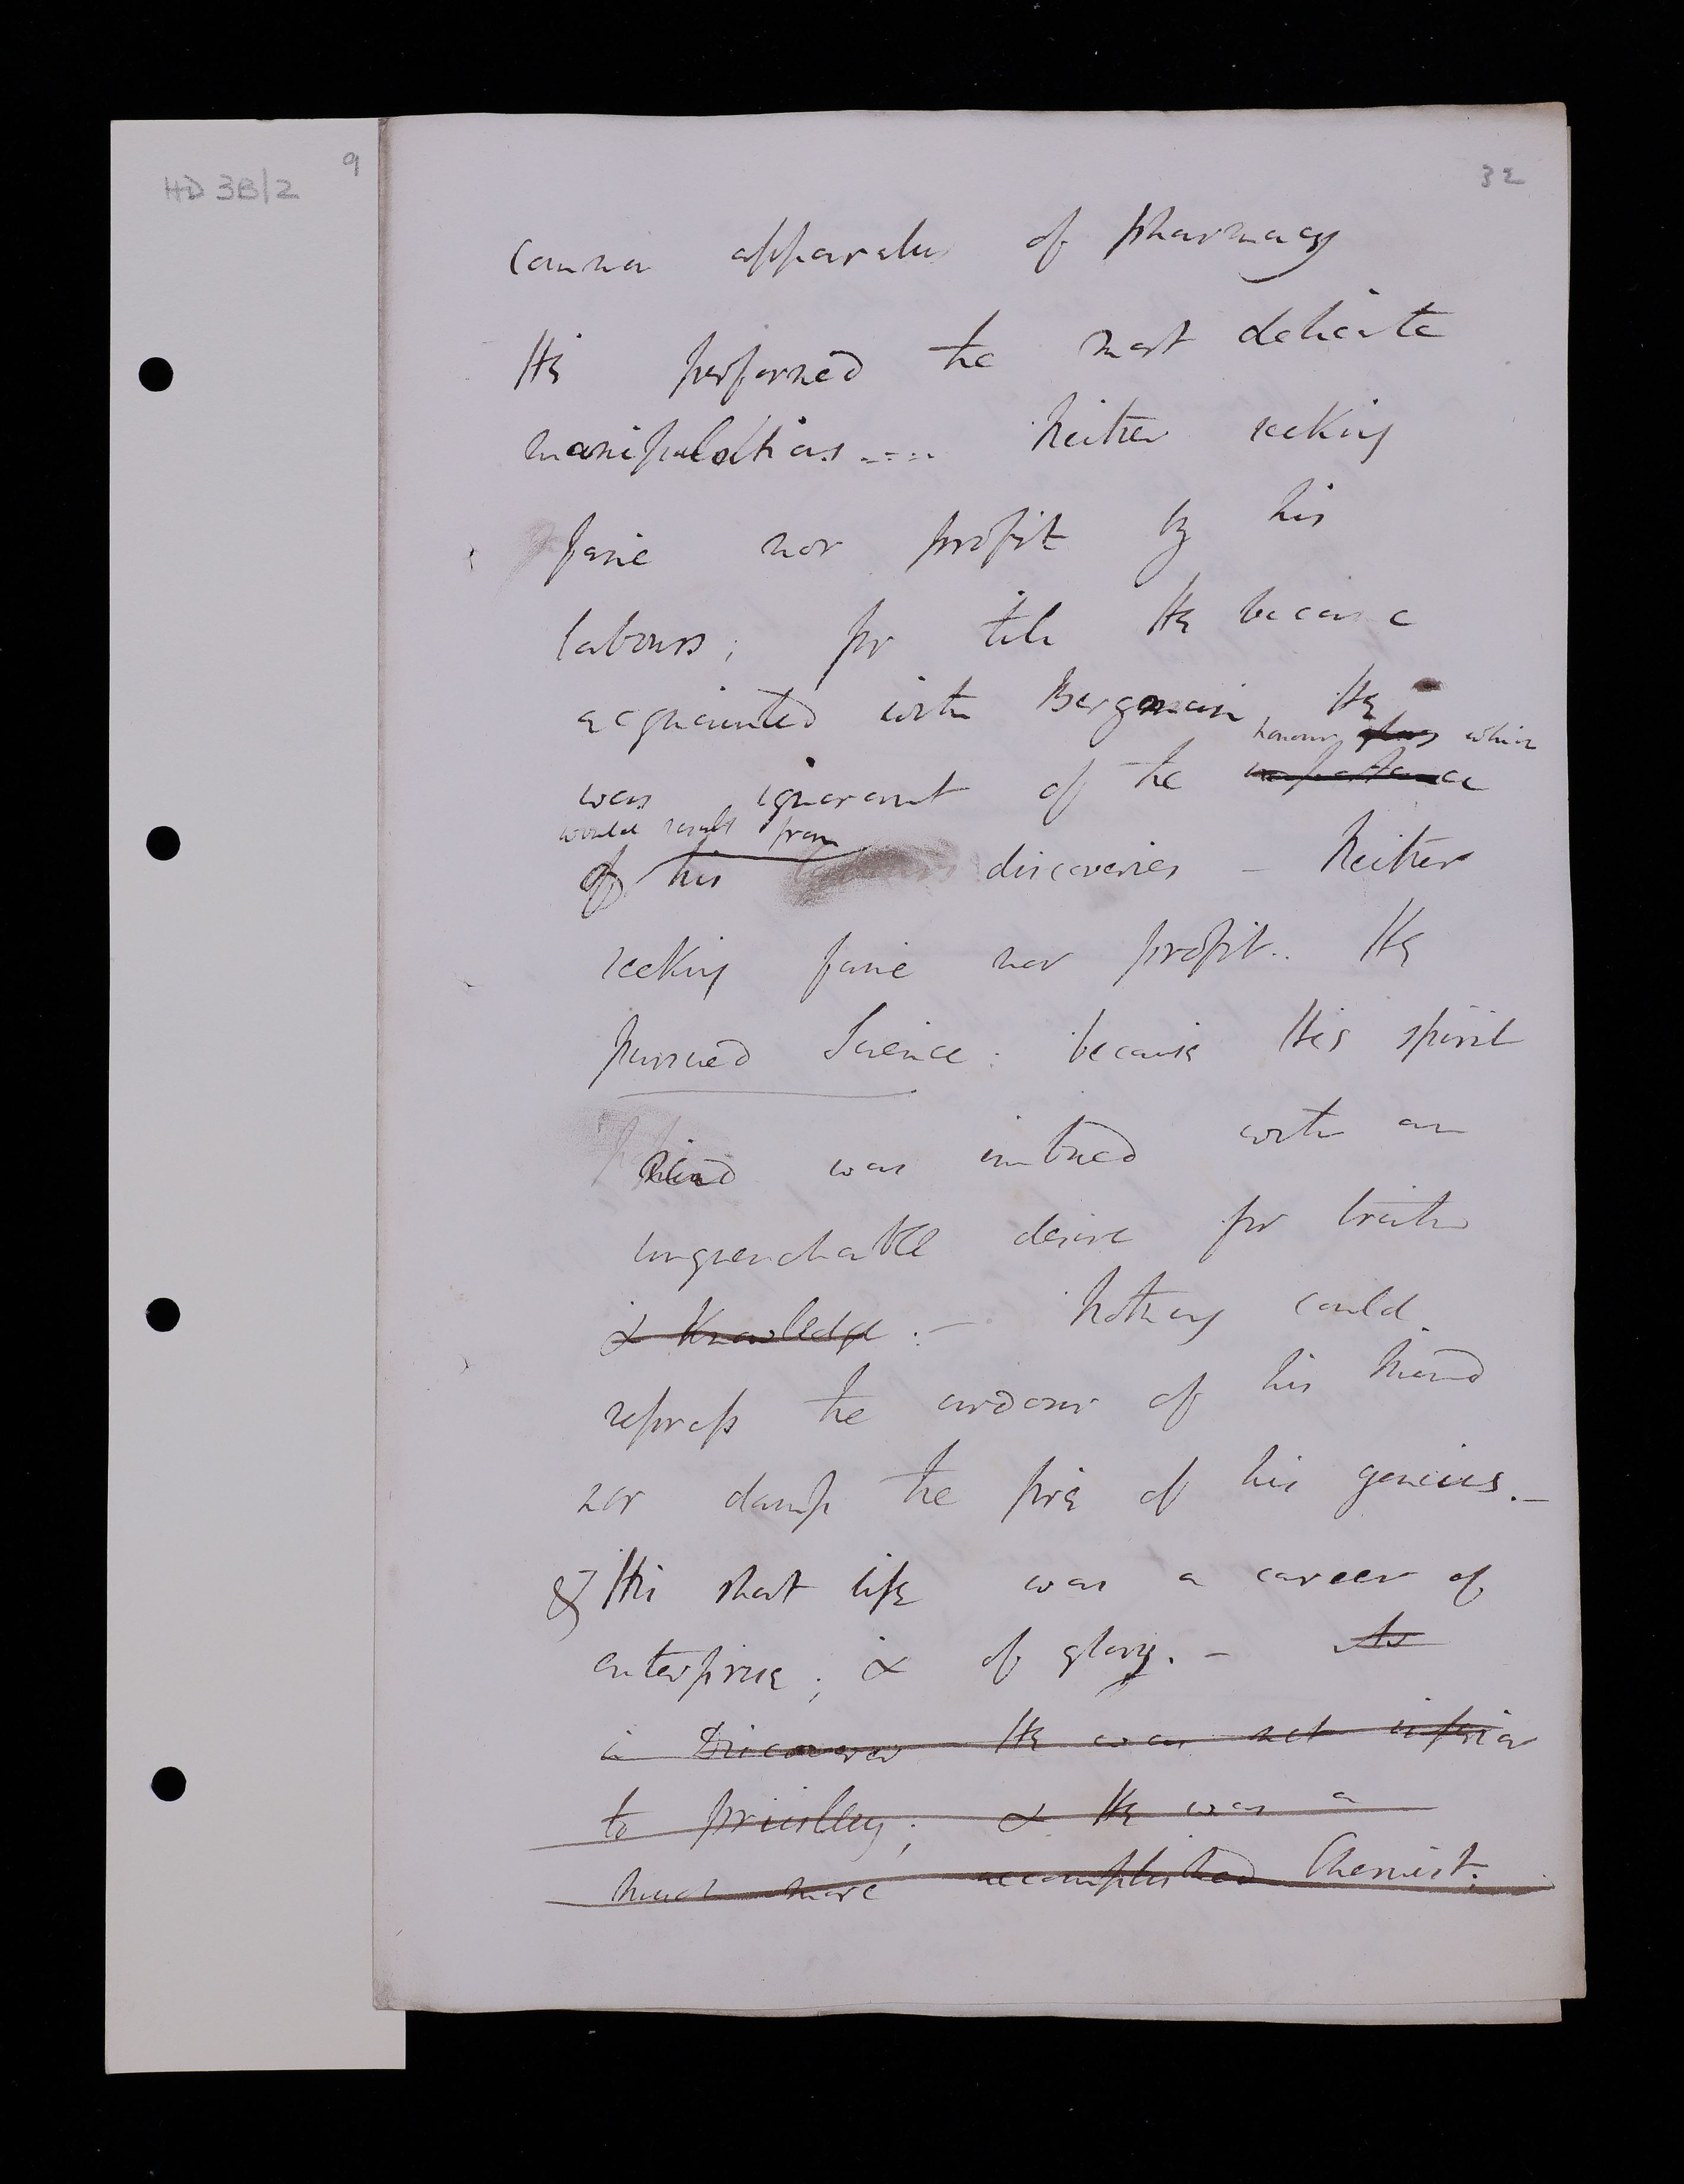 HD 3B/2
9
32
common apparatus of pharmacy
He performed the most delicate
manipulations .... Neither seeking
fame nor profit by his
labours; for till He became
acquainted with Bergman He
honour glory which
was ignorant of the importance
would result from
of his labours discoveries - Neither
seeking fame nor profit.. He
pursued Science: because His spirit
mind was imbued with an
unquenchable desire for truth
& Knowledge. - Nothing could
repress the ardour of his mind
nor damp the fire of his genius. -
& His short life was a career of
enterprise; & of glory. - As
a Discoverer He was not inferior
to priestley; & He was a
much more accomplished Chemist.